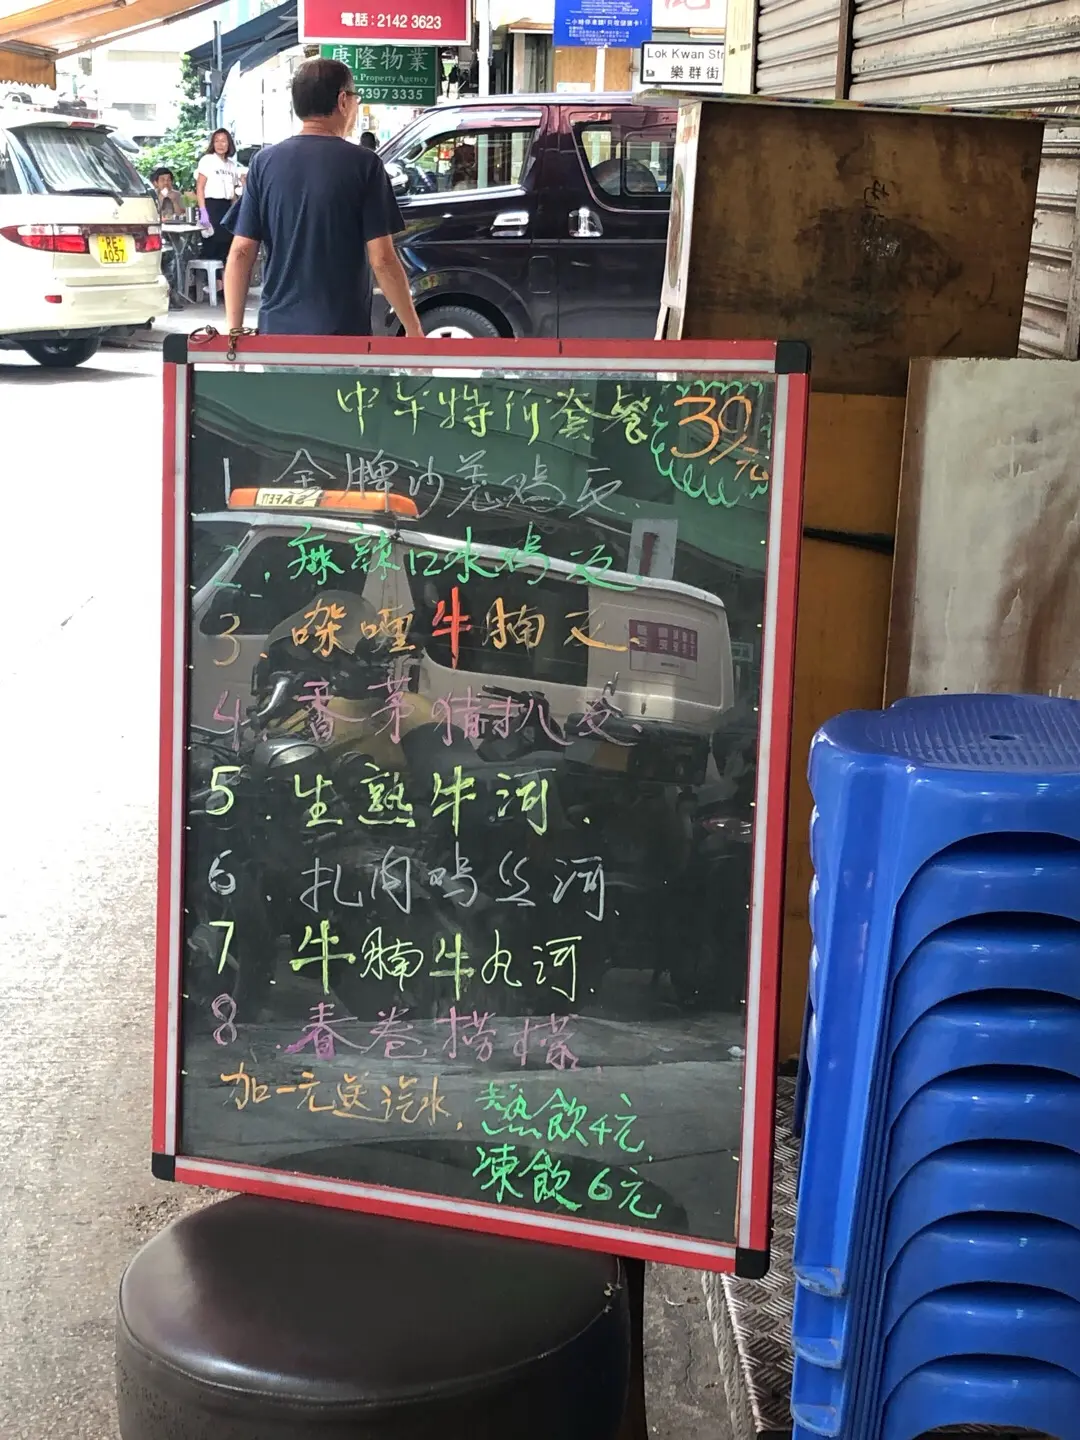 電話：2142 3623
康隆物業
n Property Agency
2397 3335
二小時停車證
Lok Kwan Str
樂群街
RE
4057
中午特价套餐 39/元
1 金牌沙羌鸡反.
2. 麻辣口水鸡反.
3. 㗎喱牛腩反.
4. 香茅猪扒反.
5. 生熟牛河.
6. 扎肉鸡丝河.
7 牛腩牛丸河.
8. 春卷捞檬.
加一元送汽水.
熱飲4元
凍飲6元